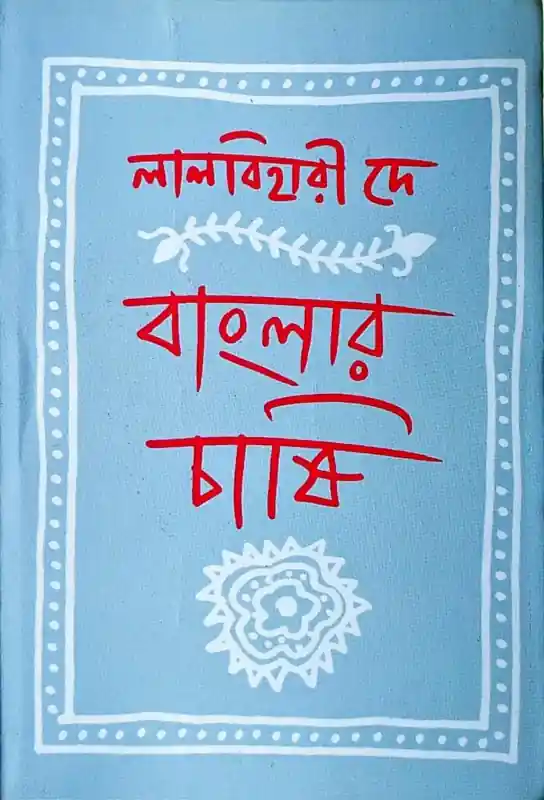 লালবিহারী দে
বাংলার
চাষি